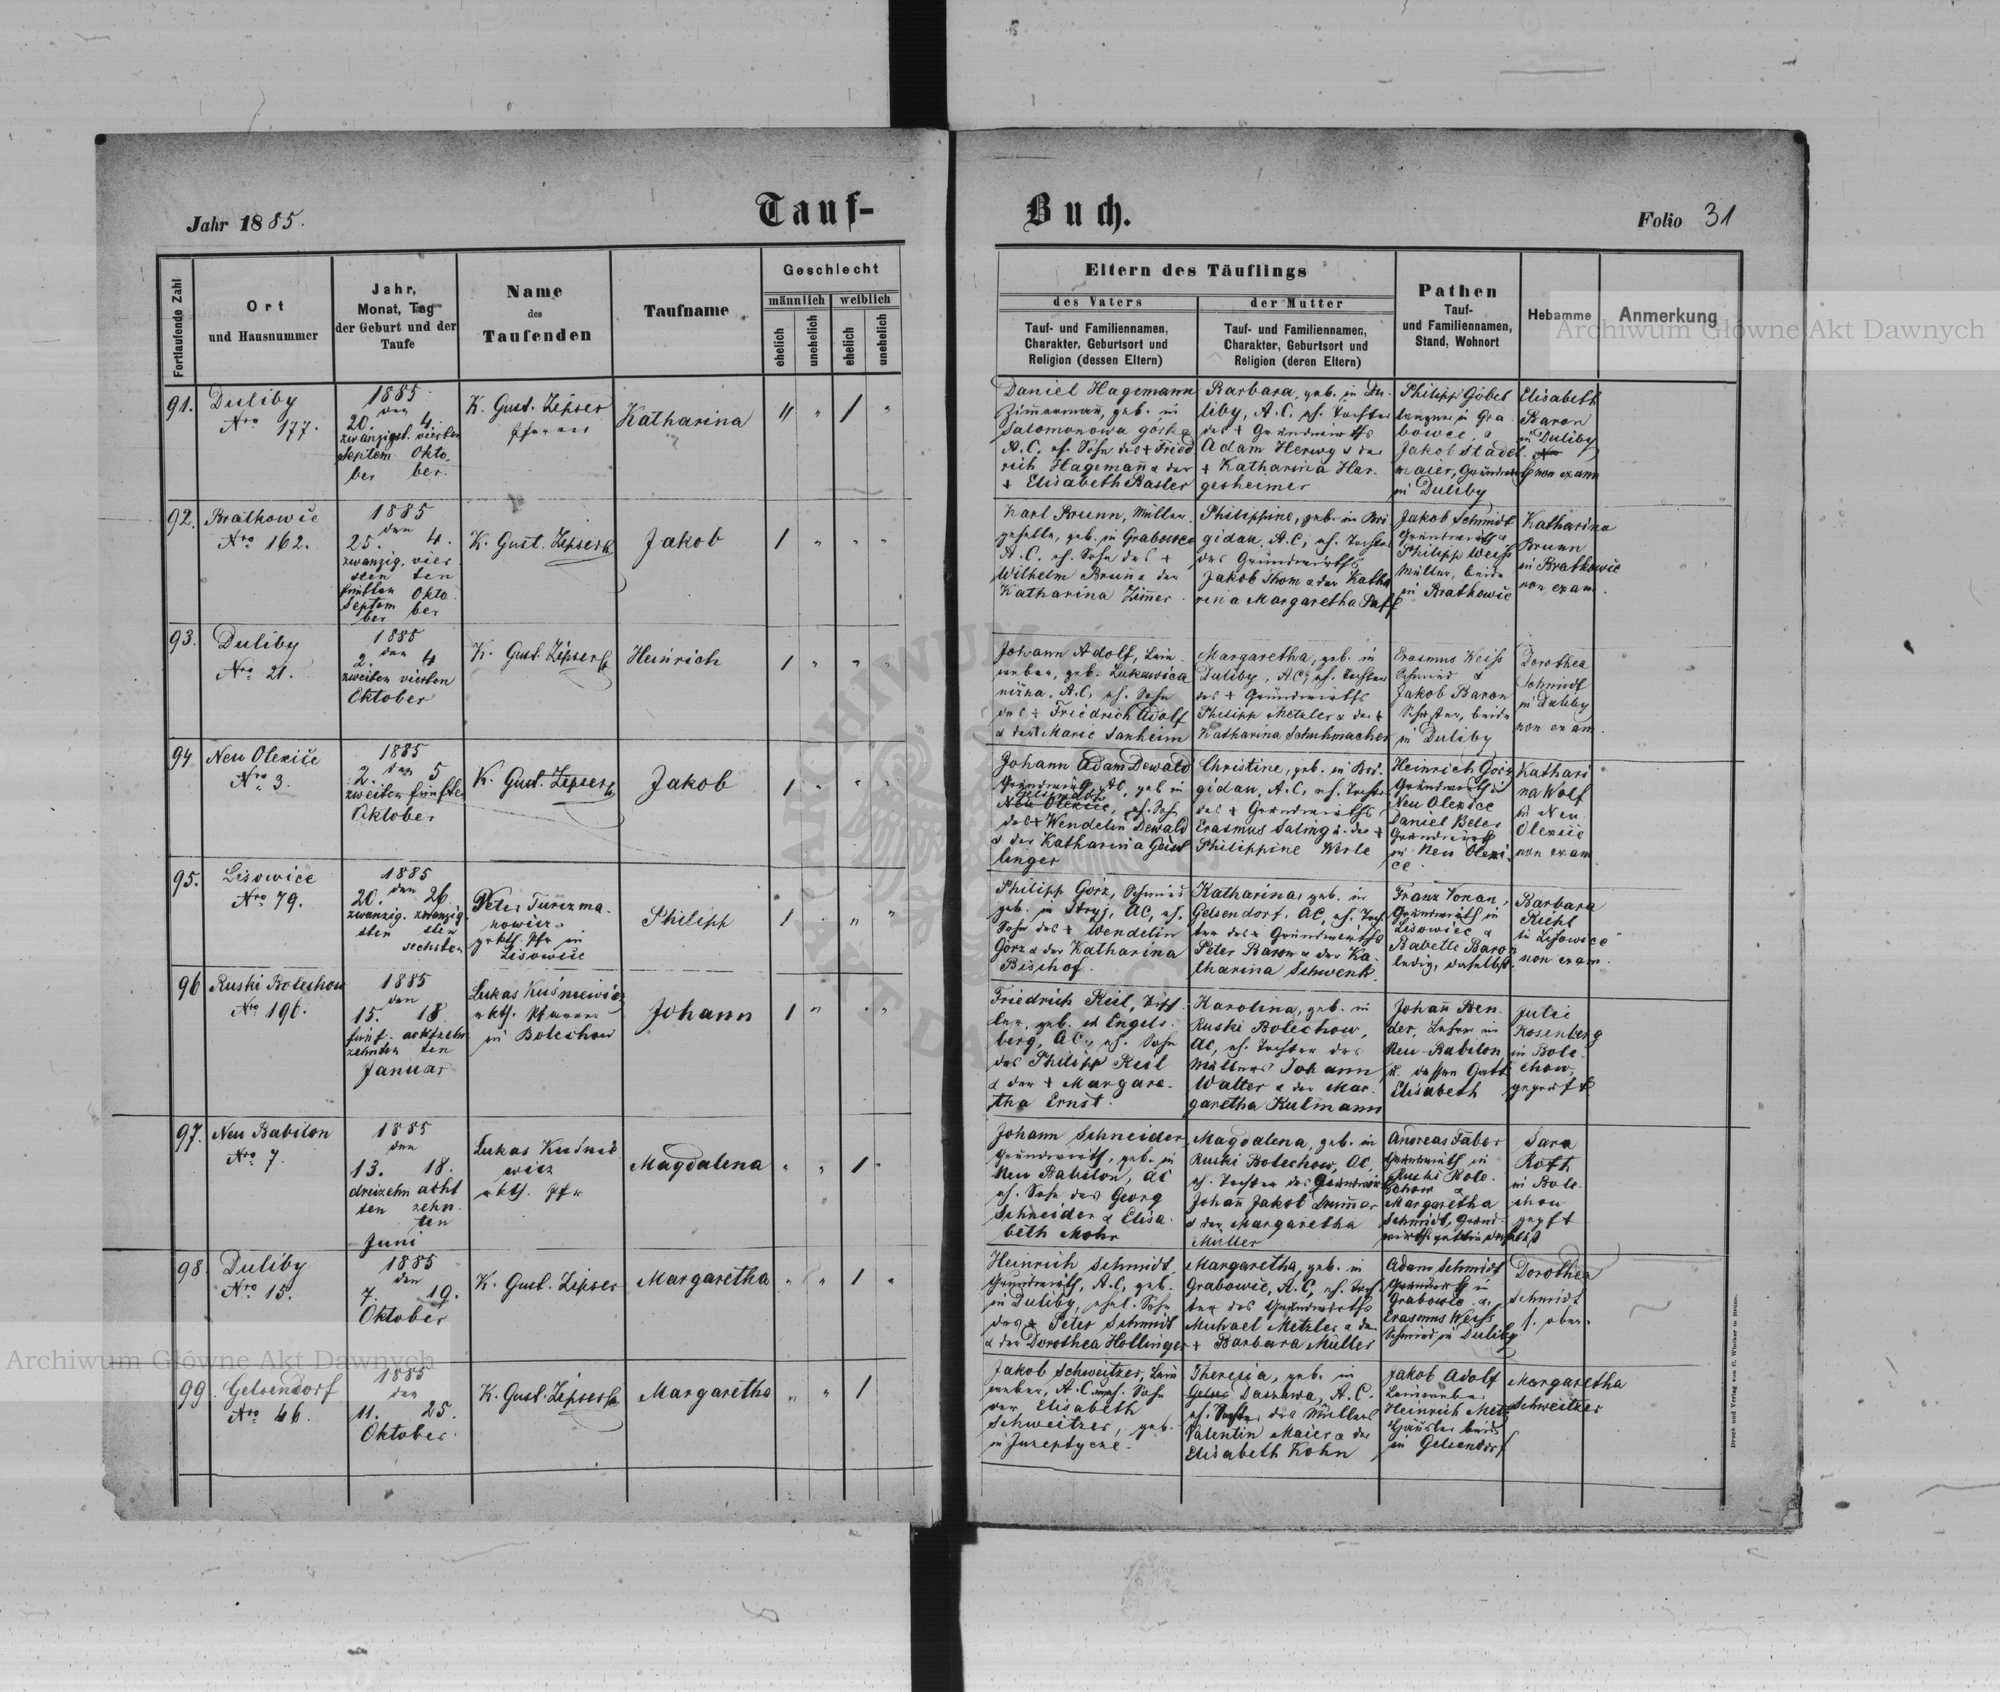 Jahr 1885.
Tauf-
Buch.
Folio 31
Fortlaufende Zahl
Ort
und Hausnummer
Jahr,
Monat, Tag
der Geburt und der
Taufe
Name
des
Taufenden
Taufname
Geschlecht
männlich
weiblich
ehelich
unehelich
ehelich
unehelich
Eltern des Täuflings
des Vaters
Tauf- und Familiennamen,
Charakter, Geburtsort und
Religion (dessen Eltern)
der Mutter
Tauf- und Familiennamen,
Charakter, Geburtsort und
Religion (deren Eltern)
Pathen
Tauf-
und Familiennamen,
Stand, Wohnort
Hebamme
Anmerkung
91.
Duliby
Nro 177.
1885
den
20. 4.
zwanzigst. vierten
Septem Okto-
ber ber.
K. Gust. Zipser
Pfarrer
Katharina
" " 1 "
Daniel Hagemann
Zimmermann, geb. in
Salomonowa gorka
A.C. eh. Sohn des + Fried
rich Hagemann & der
+ Elisabeth Baster
Barbara, geb. in Du-
liby, A.C. eh. Tochter
des + Grundwirths
Adam Herwy & der
+ Katharina Har-
gesheimer
Philipp Göbel
in Gra
bowce, &
Jakob Stadel
maier, Grundw
in Duliby
Elisabeth
Baron
in Duliby
non exam
92.
Bratkowice
Nro 162.
1885
den
25. 4.
zwanzig. vier
sten ten
fünften Okto
Septem ber
ber
K. Gust. Zipser
Jakob
1 " " "
Karl Brunn, Müller
geselle, geb. in Grabowce
A.C. eh. Sohn des +
Wilhelm Brunn & der
Katharina Zimmer
Philippine, geb. in Bri
gidau, A.C, eh. Tochter
des Grundwirths
Jakob Thom & der Katha
rina Margaretha Paff
Jakob Schmidt
Grundwirth &
Philipp Weiss
Müller, beide
in Bratkowice
Katharina
Brunn
in Bratkowice
non exam.
93.
Duliby
Nro 21.
1885
den
2. 4
zweiten vierten
Oktober
K. Gust. Zipser
Heinrich
1 " " "
Johann Adolf, Lein
weber, geb. Lukawica
nizna, A.C, eh. Sohn
des + Friedrich Adolf
& der + Marie Sanheim
Margaretha, geb. in
Duliby, A.C, eh. Tochter
des + Grundwirths
Philipp Metzler & der +
Katharina Schuhmacher
Erasmus Weiss
Schmied &
Jakob Baron
Schuster, beide
in Duliby
Dorothea
Schmidt
in Duliby
non exam.
94
Neu Olexice
Nro 3.
1885
den
2. 5
zweiten fünften
Oktober
K. Gust. Zipser
Jakob
1 " " "
Johann Adam Dewald
Grundwirth, AC, geb in
Gelsendorf
Neu Olexice, eh. Sohn
des + Wendelin Dewald
& der Katharina
linger
Christine, geb. in Bri-
gidau, A.C, eh. Tochter
des + Grundwirths
Erasmus Salmg & der +
Philippine Werle
Heinrich Görz
Grundwirth in
Neu Olexice
Daniel Beler
Grundwirth
in Neu Olexi-
ce
Kathari
na Wolf
in Neu
Olexice
non exam
95.
Lisowice
Nro 79.
1885
den
20. 26
zwanzig- zwanzig
sten sten
sechsten
Peter Turczma-
nowicz
gr kth. Pfr in
Lisowice
Philipp
1 " " "
Philipp Görz, Schmied
geb. in Stryj, AC, eh.
Sohn des + Wendelin
Görz & der Katharina
Bischof
Katharina, geb. in
Gelsendorf, AC, eh. Toch
ter des + Grundwirths
Peter Baron & der Ka-
tharina Schwenk
Franz Vonau,
Grundwirth in
Lisowice &
Babette Baron
ledig, daselbst
Barbara
Riehl
in Lisowice
non exam.
96
Ruski Bolechow
Nro 196.
1885
den
15. 18
fünf- achtzehn
zehnten ten
Januar
Lukas Kusniewicz
rkth. Pfarrer
in Bolechow
Johann
1 " " "
Friedrich Keil, Tisch
ler, geb. in Engels-
berg, AC, eh. Sohn
des Philipp Keil
& der + Margare-
tha Ernst.
Karolina, geb. in
Ruski Bolechow,
AC, eh. Tochter des
Müllers Johann
Walter & der Mar
garetha Kulmann
Johann Ben-
der, Lehrer in
Neu-Babilon
u. dessen Gatt
Elisabeth
Julie
Rosenberg
in Bole-
chow,
geprüft
97.
Neu Babilon
Nro 7
1885
den
13. 18.
dreizehn acht
ten zehn
ten
Juni
Lukas Kusnie
wicz
rkth. Pfr
Magdalena
" " 1 "
Johann Schneider
Grundwirth, geb. in
Neu Babilon, AC
eh. Sohn des Georg
Schneider & Elisa-
beth Mohr
Magdalena, geb. in
Ruski Bolechow, AC,
eh. Tochter des Grundwirth
Johann Jakob Drummer
& der Margaretha
Müller
Andreas Faber
Grundwirth in
Ruski Bole-
chow &
Margaretha
Schmidt, Grund-
wirthsgattin daselbst
Sara
Roth
in Bole-
chow
gepft
98
Duliby
Nro 15.
1885
den
7. 19.
Oktober
K. Gust. Zipser
Margaretha
" " 1 "
Heinrich Schmidt,
Grundwirth, A.C, geb.
in Duliby, ehel. Sohn
des + Peter Schmidt
& der Dorothea Hollinger
Margaretha, geb. in
Grabowce, A.C, eh. Toch
ter des Grundwirths
Michael Metzler & der
+ Barbara Müller
Adam Schmidt
Grundwirth in
Grabowce &
Erasmus Weiss
Schmied in Duliby
Dorothea
Schmidt
s. oben.
99
Gelsendorf
Nro 46.
1885
den
11. 25.
Oktober
K. Gust. Zipser
Margaretha
" " 1
Jakob Schweitzer, Lein
weber, A.C. uneh. Sohn
der Elisabeth
Schweitzer, geb.
in Juzeptycze.
Theresia, geb. in
Daszawa, A.C.
eh. Tochter des Müllers
Valentin Maier & der
Elisabeth Kohn
Jakob Adolf
Leinweber
Heinrich Metz
Häusler beide
in Gelsendorf
Margaretha
Schweitzer
Druck und Verlag von C. Winiker in Brünn.
Archiwum Główne Akt Dawnych
Archiwum Główne Akt Dawnych